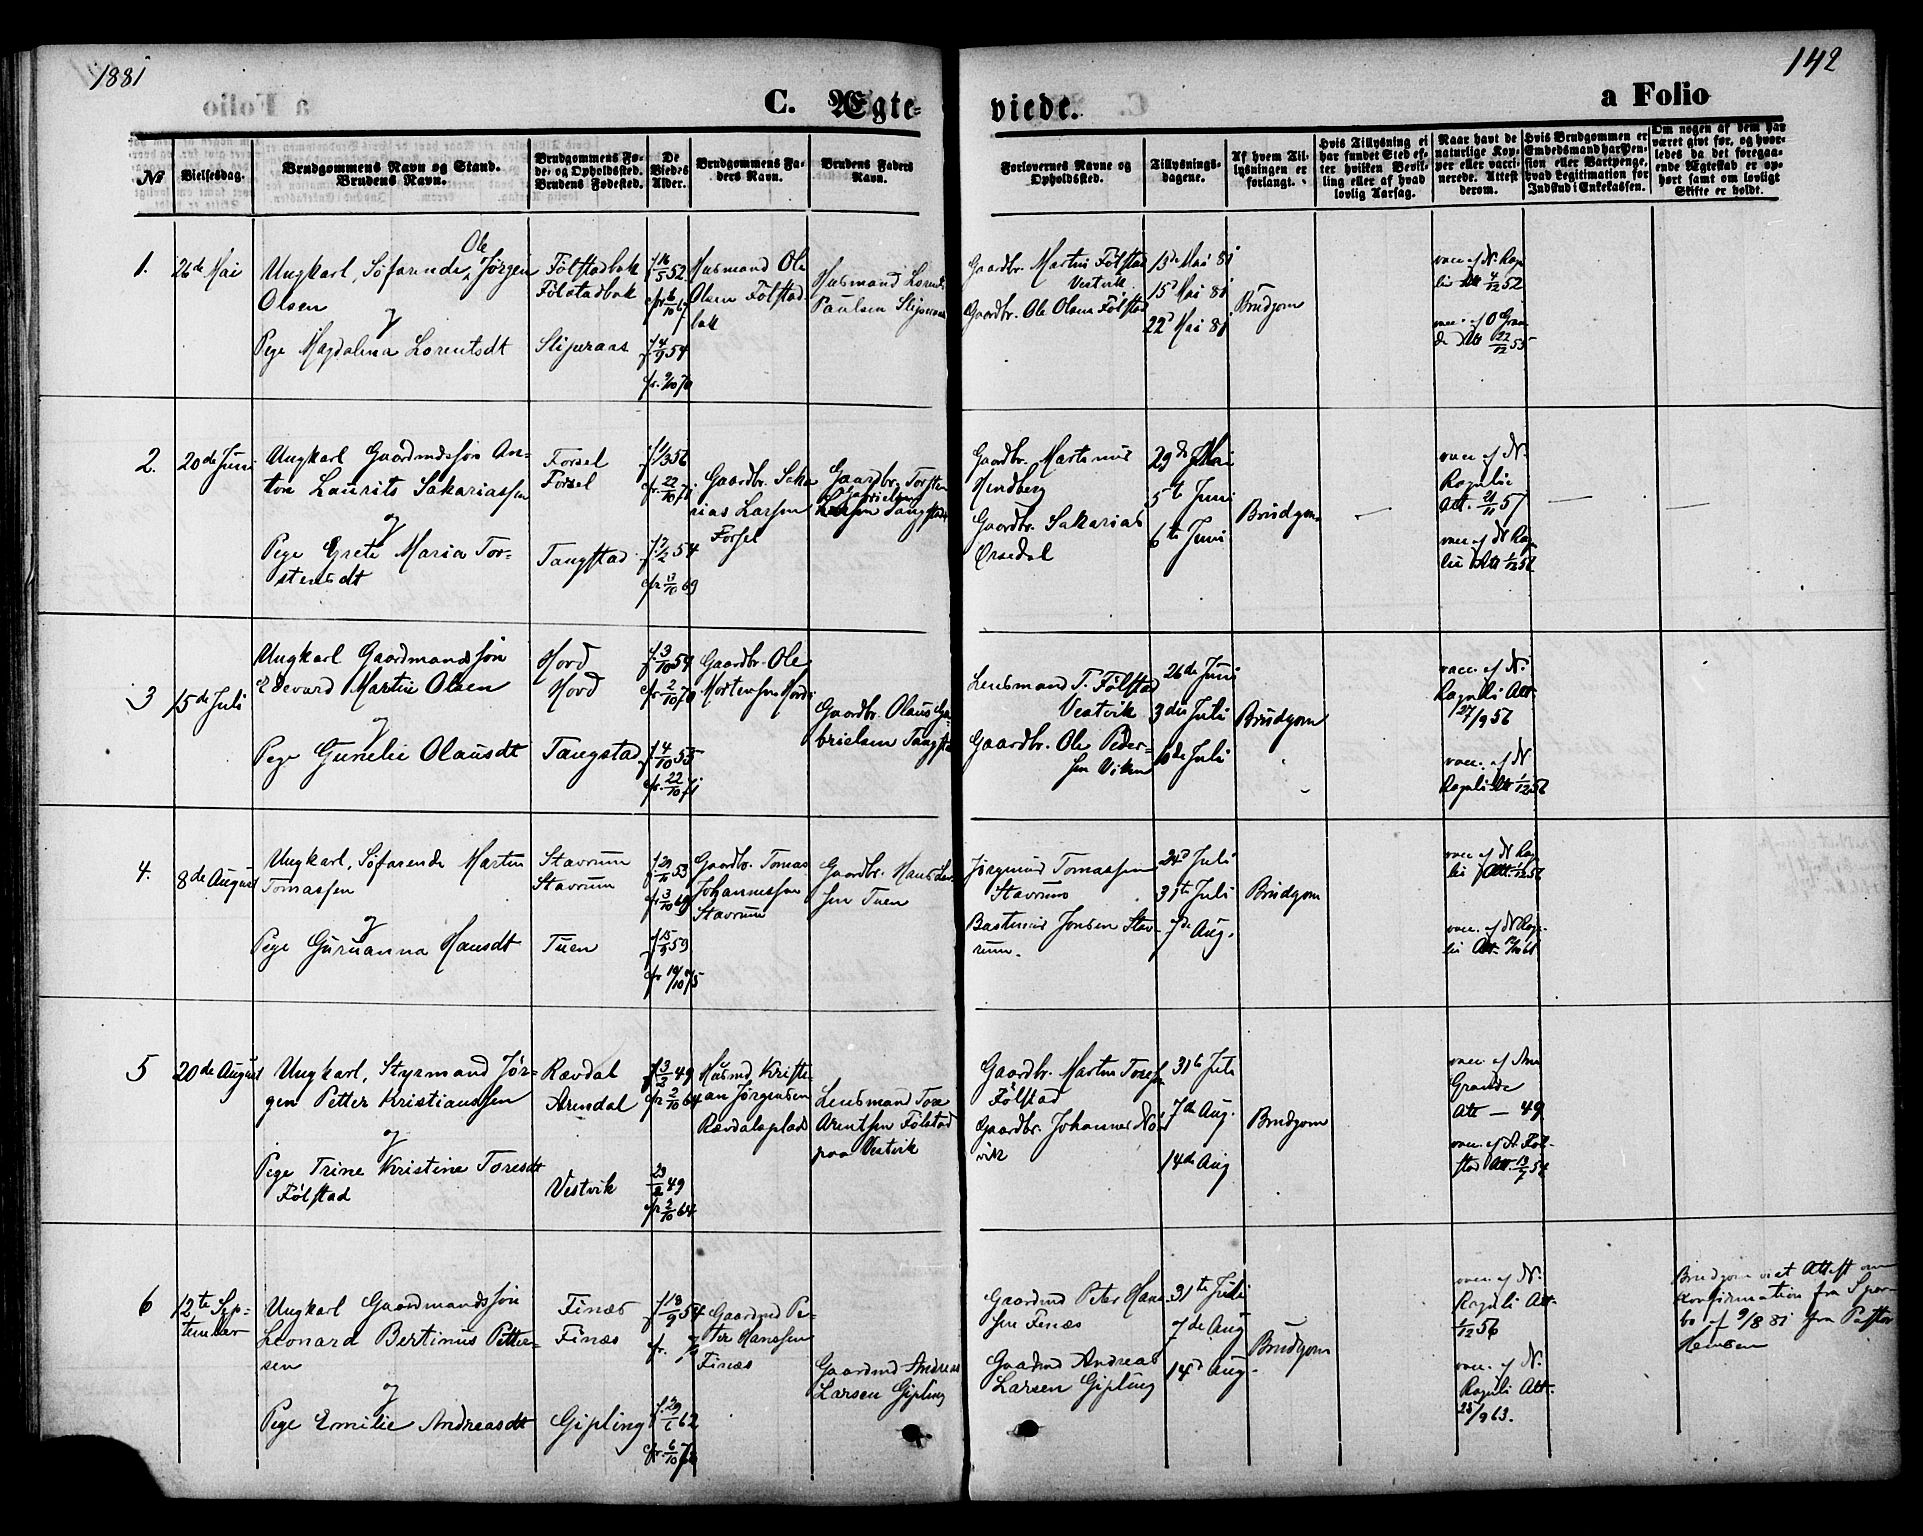 1881
142
C. Ægte-
viede.
a Folio
No
Vielsesdag.
Brudgommens Navn og Stand.
Brudens Navn.
Brudgommens Fø-
de- og Opholdssted.
Brudens Fødested.
De
Viedes
Alder.
Brudgommens Fa-
ders Navn.
Brudens Faders
Navn.
Forlovernes Navne og
Opholdssted.
Tillysnings-
dagene.
Af hvem Til-
lysningen er
forlangt.
Hvis Tillysning ei
har fundet Sted ef-
ter hvilken Bevil-
ling eller af hvad
lovlig Aarsag.
Naar havt de
naturlige Kop-
per eller vacci-
nerede. Attest
derom.
Hvis Brudgommen er
Embedsmand har Pen-
sion eller Vartpenge,
hvad Legitimation for
Indskud i Enkekassen.
Om nogen af dem har
været givt før, og hvor-
ledes da det foregaa-
ende Ægteskab er op-
hørt samt om lovligt
Skifte er holdt.
1.
26de Mai
Ole
Ungkarl, Søfarende, Jørgen
Olsen
og
Pege Magdalena Lorentsdt
Følstadbak
Følstadbak
Slipraas
f. 16/5 52
f. 4/9 54
cfr. 9/10 70
Husmand Ole
Olsen Følstad-
bak
Husmand Lorents
Paulsen
Gaardbr. Martin Følstad
Vestvik
Gaardbr. Ole Olsen Følstad
15de Mai 81
22d Mai 81
Brudgom
vacc. af N. Rag-
li Att 4/12 52
2.
20de Juni
Ungkarl Gaardmdssøn An-
ton Laurits Sakariassen
og
Pege Grete Maria Tor-
stensdt
Forsel
Forsel
Tangstad
cfr. 22/10 71
cfr 13/10 69
Gaardbr. Saka
rias Larsen
Forsel
Gaardbr. Torsten
Gabrielsen
Tangstad
Gaardbr. Martinus
Hindberg
Gaardbr. Sakarias
Ørsedal
29de Mai
5te Juni
6te Juni
Brudgom
vacc. af N.
Raguli
Att. 21/11 57
vacc. af N Rag-
li Att 1/12 56
3
15de Juli
Ungkarl Gaardmandssøn
Edevard Martin Olsen
og
Pege Gurelie Olausdt
Hord
Hord
Tangstad
f. 3/10 54
cfr. 2/10 70
f. 4/10 55
cfr. 22/10 71
Gaardbr. Ole
Mortensen Hord
Gaardbr. Olaus Ga-
brielsen Tangstad
Lensmand T. Følstad
Vestvik
Gaardbr. Ole Peder-
sen Viken
26de Juni
3die Juli
10de Juli
Brudgom
vacc. af N.
Raguli Att.
27/9 56
vacc. af N
Raguli Att 1/12 56
4.
8de August
Ungkarl, Søfarende Martin
Tomassen
og
Pege Guruanna Hansdt
Stavrum
Stavrum
Tuen
f. 29/11 53
cfr. 3/10 69
f. 15/9 59
cfr 10/10 75
Gaardbr. Tomas
Johannessen
Stavrum
Gaardbr. Hans Lar-
sen Tuen
Jørginus Tomassen
Stavrum
Bastinus Jonsen Stav-
rum.
24d Juli
31te Juli
7de Aug.
Brudgom
vacc. af N Rag-
li Att. 1/12 56
vacc. af N Rag-
li Att.
5
20de August
Ungkarl, Styrmand Jør-
gen Petter Kristianssen
og
Pege Trine Kristine Toresdt
Følstad
Rævdal
Arendal
Vestvik
f. 3/3 49
cfr 2/10 64
23/2 49
cfr 2/10 64
Husmd Kristi-
an Jørgensen
Rævdalsplads
Lensmand Tore
Arentsen Følstad
paa Vestvik
Gaardbr. Martin Toresen
Følstad
Gaardbr. Johannes Nor-
vik
31te Juli
7de Aug.
14de Aug
Brudgom
vacc. af Am
Grande
Att — 49
vacc. af A. Føl-
stad Att. 13/7 54
6
12te Sep-
tember
Ungkarl Gaardmandssøn
Leonard Bertinus Petter-
sen
og
Pege Emilie Andreasdt
Finæs
Finæs
Gipling
f. 18/9 54
cfr.
f. 29/6 62
Gaardmd Pe-
ter Hanssen
Finæs
Gaardmd Andreas
Larsen Gipling
Gaardmd Peter Han-
sen Finæs
Gaardmd Andreas
Larsen Gipling
31te Juli
7de Aug
14d Aug.
Brudgom
vacc. af N.
Raguli Att.
1/12 56
vacc. af N.
Raguli Att.
25/9 63.
Brudgom viet Attest om
Konfirmation fra Spar-
bo af 9/8 81 fra Pastor